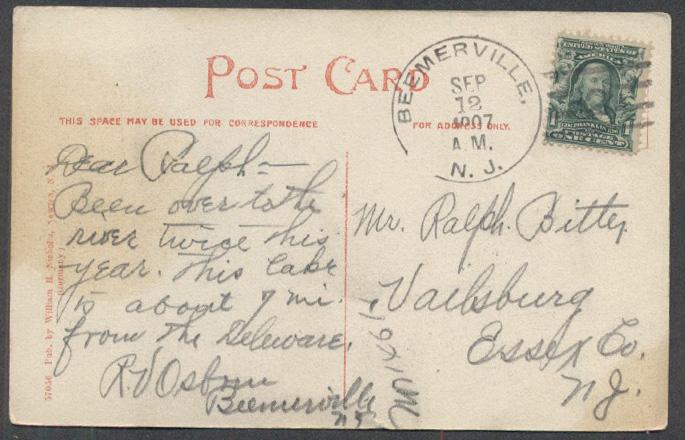 POST CARD
THIS SPACE MAY BE USED FOR CORRESPONDENCE
FOR ADDRESS ONLY.
BEEMERVILLE,
SEP
12
1907
A.M.
N. J.
UNITED STATES OF
AMERICA
1 1
POSTAGE
ONE CENT
Dear Ralph—
Been over to the
river twice this
year. This lake
is about 7 mi.
from the Deleware.
R.V Osborn
Beemerville
NJ
Mr. Ralph. Bitter
Vailsburg
Essex Co.
NJ.
57056 Pub. by William H. Nicholls, Newton, N. J.
(Germany)